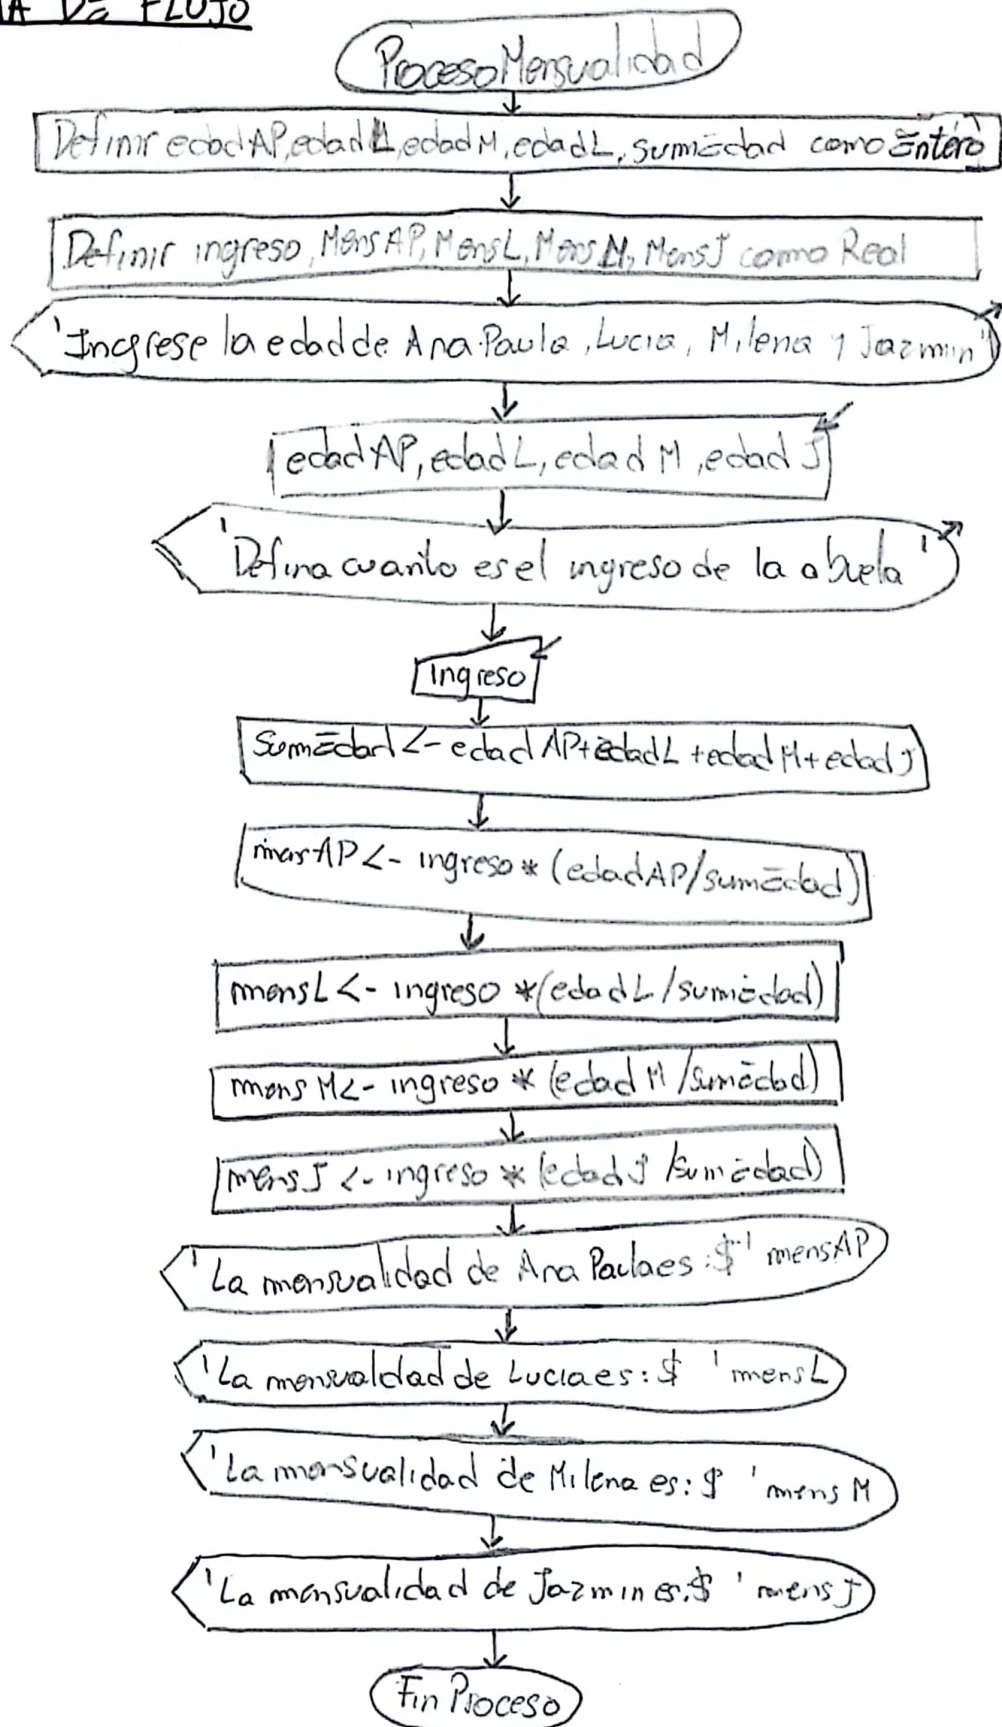 DE FLUJO
Proceso Mensualidad
Definir edadAP, edadL, edadM, edadL, sumEdad como Entero
Definir ingreso, MensAP, MensL, MensM, MensJ como Real
'Ingrese la edad de Ana Paula, Lucia, Milena y Jazmin'
edadAP, edadL, edad M, edad J
'Defina cuanto es el ingreso de la abuela'
Ingreso
sumEdad <- edad AP + edad L + edad M + edad J
mensAP <- ingreso * (edadAP/sumEdad)
mensL <- ingreso * (edadL/sumEdad)
mens M <- ingreso * (edad M/sumEdad)
mensJ <- ingreso * (edadJ /sumEdad)
'La mensualidad de Ana Paula es: $' mensAP
'La mensualdad de Lucia es: $ ' mensL
'La mensualidad de Milena es: $ ' mens M
'La mensualidad de Jazmin es: $ ' mensJ
Fin Proceso